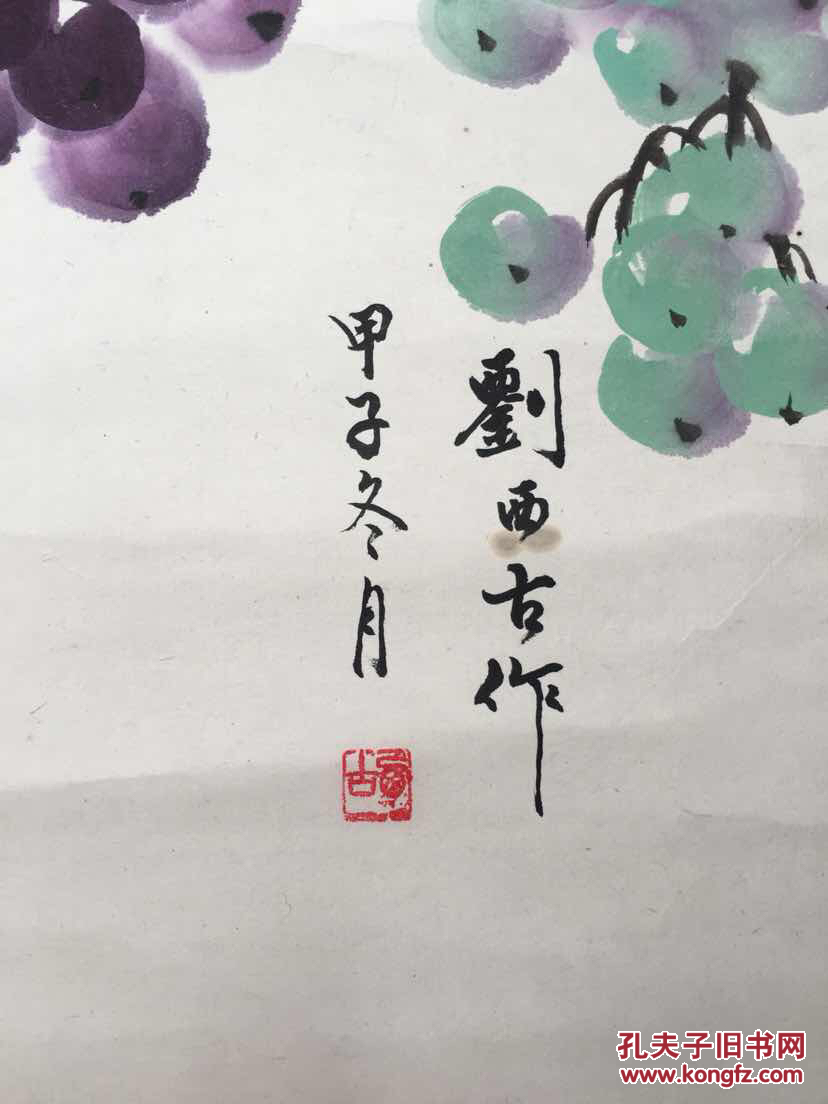 劉西古作
甲子冬月
西古
孔夫子旧书网
www.kongfz.com